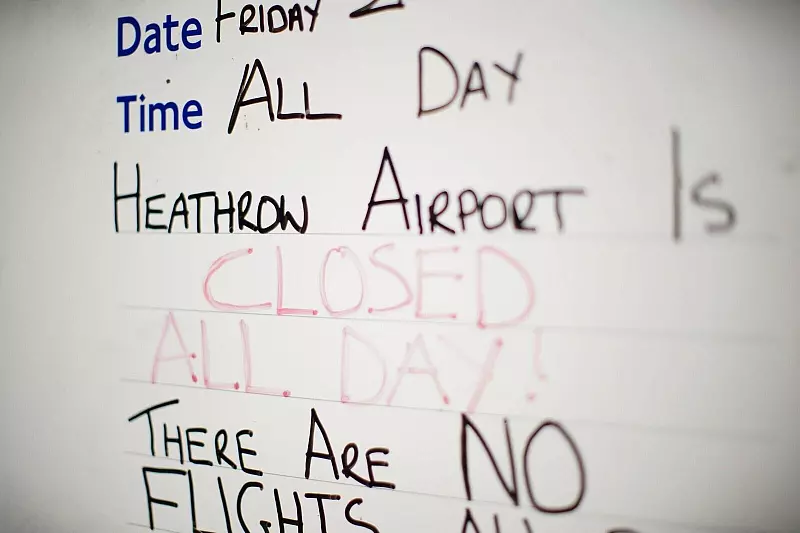 Date FRIDAY 2
Time ALL DAY
HEATHROW AIRPORT IS
CLOSED
ALL DAY!
THERE ARE NO
FLIGHTS